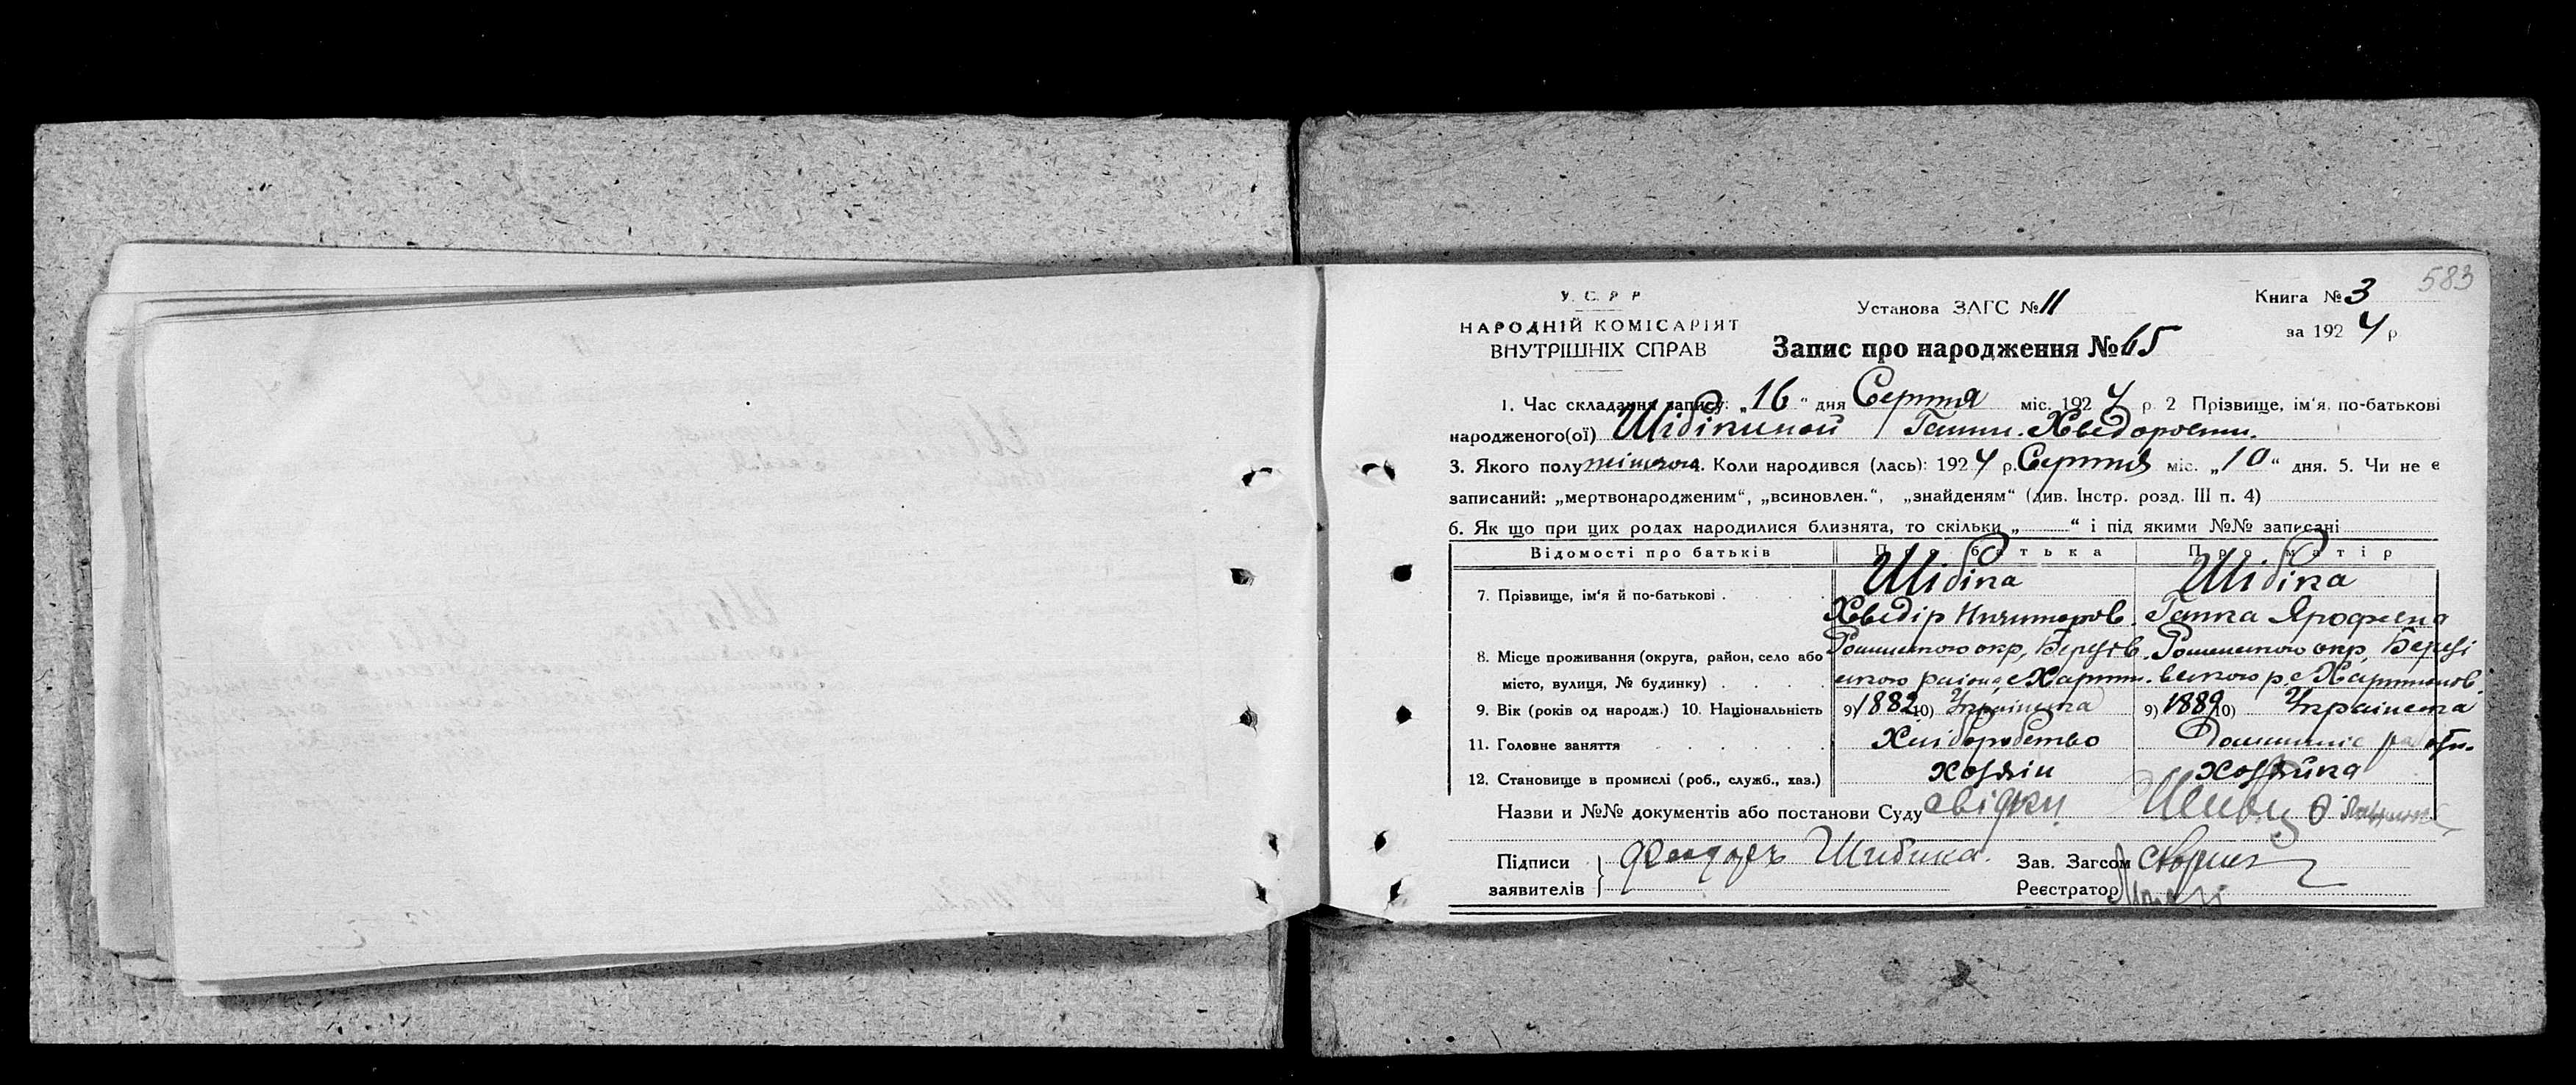 583
У. С. Р. Р
НАРОДНІЙ КОМІСАРІЯТ
ВНУТРІШНІХ СПРАВ
Установа ЗАГС № 11
Книга № 3
за 1924 р
Запис про народження № 65
1. Час складання запису: „16“ дня Серпня міс. 1924 р. 2 Прізвище, ім‘я, по-батькові
народженого(ої) Шібікиной Ганни Хведоровни.
3. Якого полу жіночого 4. Коли народився (лась): 1924 р. Серпня міс. „10“ дня. 5. Чи не є
записаний: „мертвонародженим“, „всиновлен.“, „знайденям“ (див. Інстр. розд. III п. 4)
6. Як що при цих родах народилися близнята, то скільки „ “ і під якими №№ записані
Відомості про батьків Про батька Про матір
7. Прізвище, ім‘я й по-батькові Шібіка Шібіка
Хведір Ничипоров. Ганка Ярофеевна
8. Місце проживання (округа, район, село або Роменского окр, Березів. Роменского окр, Березі
місто, вулиця, № будинку) ского района, с Хартин. вского р. с
9. Вік (років од народж.) 10. Національність 9) 1882 10) Українета 9) 1889 10) Українета
11. Головне заняття Хліборобство Домашніе работи.
12. Становище в промислі (роб., служб., хаз.) Хозяін Хозяйка
Назви и №№ документів або постанови Суду свідки Швец
Підписи
заявителів } Шибика.
Зав. Загсом
Реєстратор